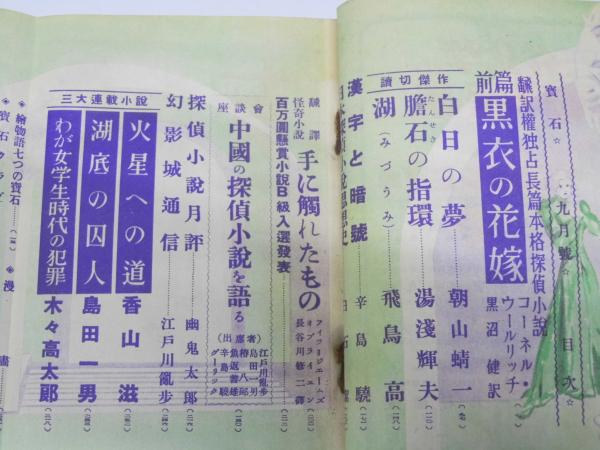 寶石☆九月號☆目次☆
飜訳權独占長篇本格探偵小説
前篇 黒衣の花嫁
コーネル・ウールリッチ
黒沼 健訳
讀切傑作
白日の夢 朝山蜻一
膽石の指環 湯淺輝夫
たんせき
湖（みづうみ） 飛鳥高
漢字と暗號 辛島驍
日本探偵小説思想史
百万圓懸賞小説B級入選發表
飜譯
怪奇小説
手に觸れたもの
フィッツ＝ジェームズ・オブライエン
長谷川修二譯
座談會
中國の探偵小説を語る
（出席者）
江戸川亂步
島田一男
探偵小説月評 幽鬼太郎
幻影城通信 江戸川亂步
三大連載小説
火星への道 香山滋
湖底の囚人 島田一男
わが女学生時代の犯罪 木々高太郎
◈繪物語七つの寶石
◈漫畫
◈寶石クラブ